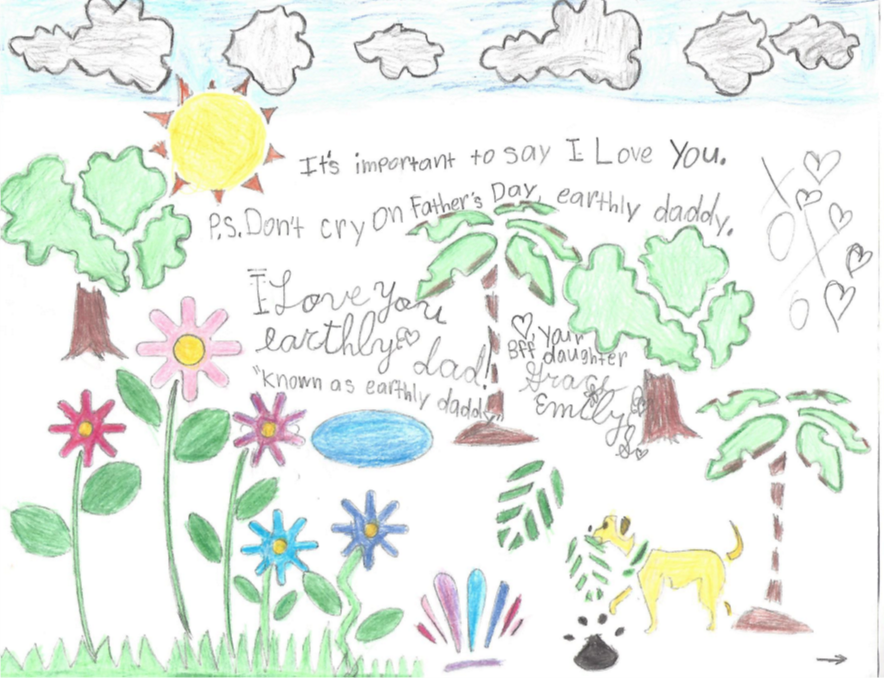 It's important to say I Love You.
P.S. Don't cry on Father's Day, earthly daddy.
I Love you
earthly dad!
"Known as earthly daddy"
your
Bff daughter
Grace
Emily
XO
OX
O